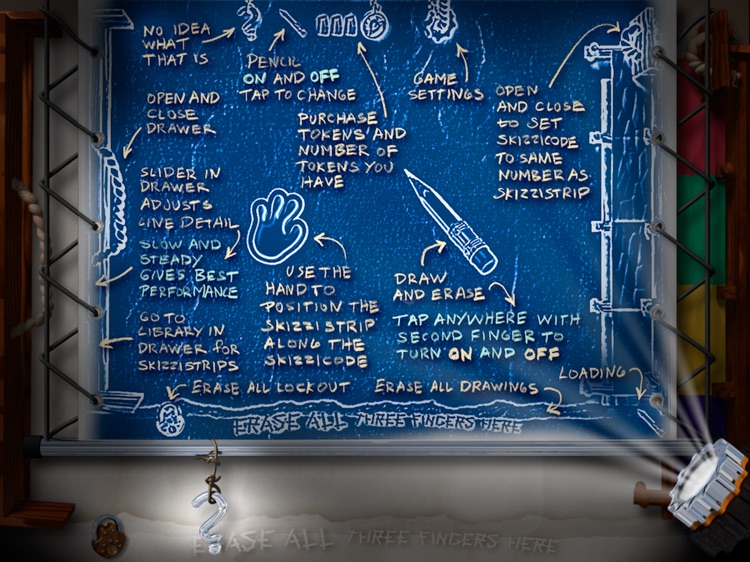 NO IDEA
WHAT
THAT IS
PENCIL
ON AND OFF
TAP TO CHANGE
GAME
SETTINGS
OPEN
AND CLOSE
to SET
SKIZZICODE
TO SAME
NUMBER AS
SKIZZISTRIP
OPEN AND
CLOSE
DRAWER
PURCHASE
TOKENS AND
NUMBER OF
TOKENS YOU
HAVE
SLIDER IN
DRAWER
ADJUSTS
LINE DETAIL
SLOW AND
STEADY
GIVES BEST
PERFORMANCE
GO TO
LIBRARY IN
DRAWER for
SKIZZISTRIPS
USE THE
HAND TO
POSITION THE
SKIZZISTRIP
ALONG THE
SKIZZICODE
DRAW
AND ERASE
TAP ANYWHERE WITH
SECOND FINGER TO
TURN ON AND OFF
LOADING
ERASE ALL LOCKOUT
ERASE ALL DRAWINGS
ERASE ALL THREE FINGERS HERE
ERASE ALL THREE FINGERS HERE